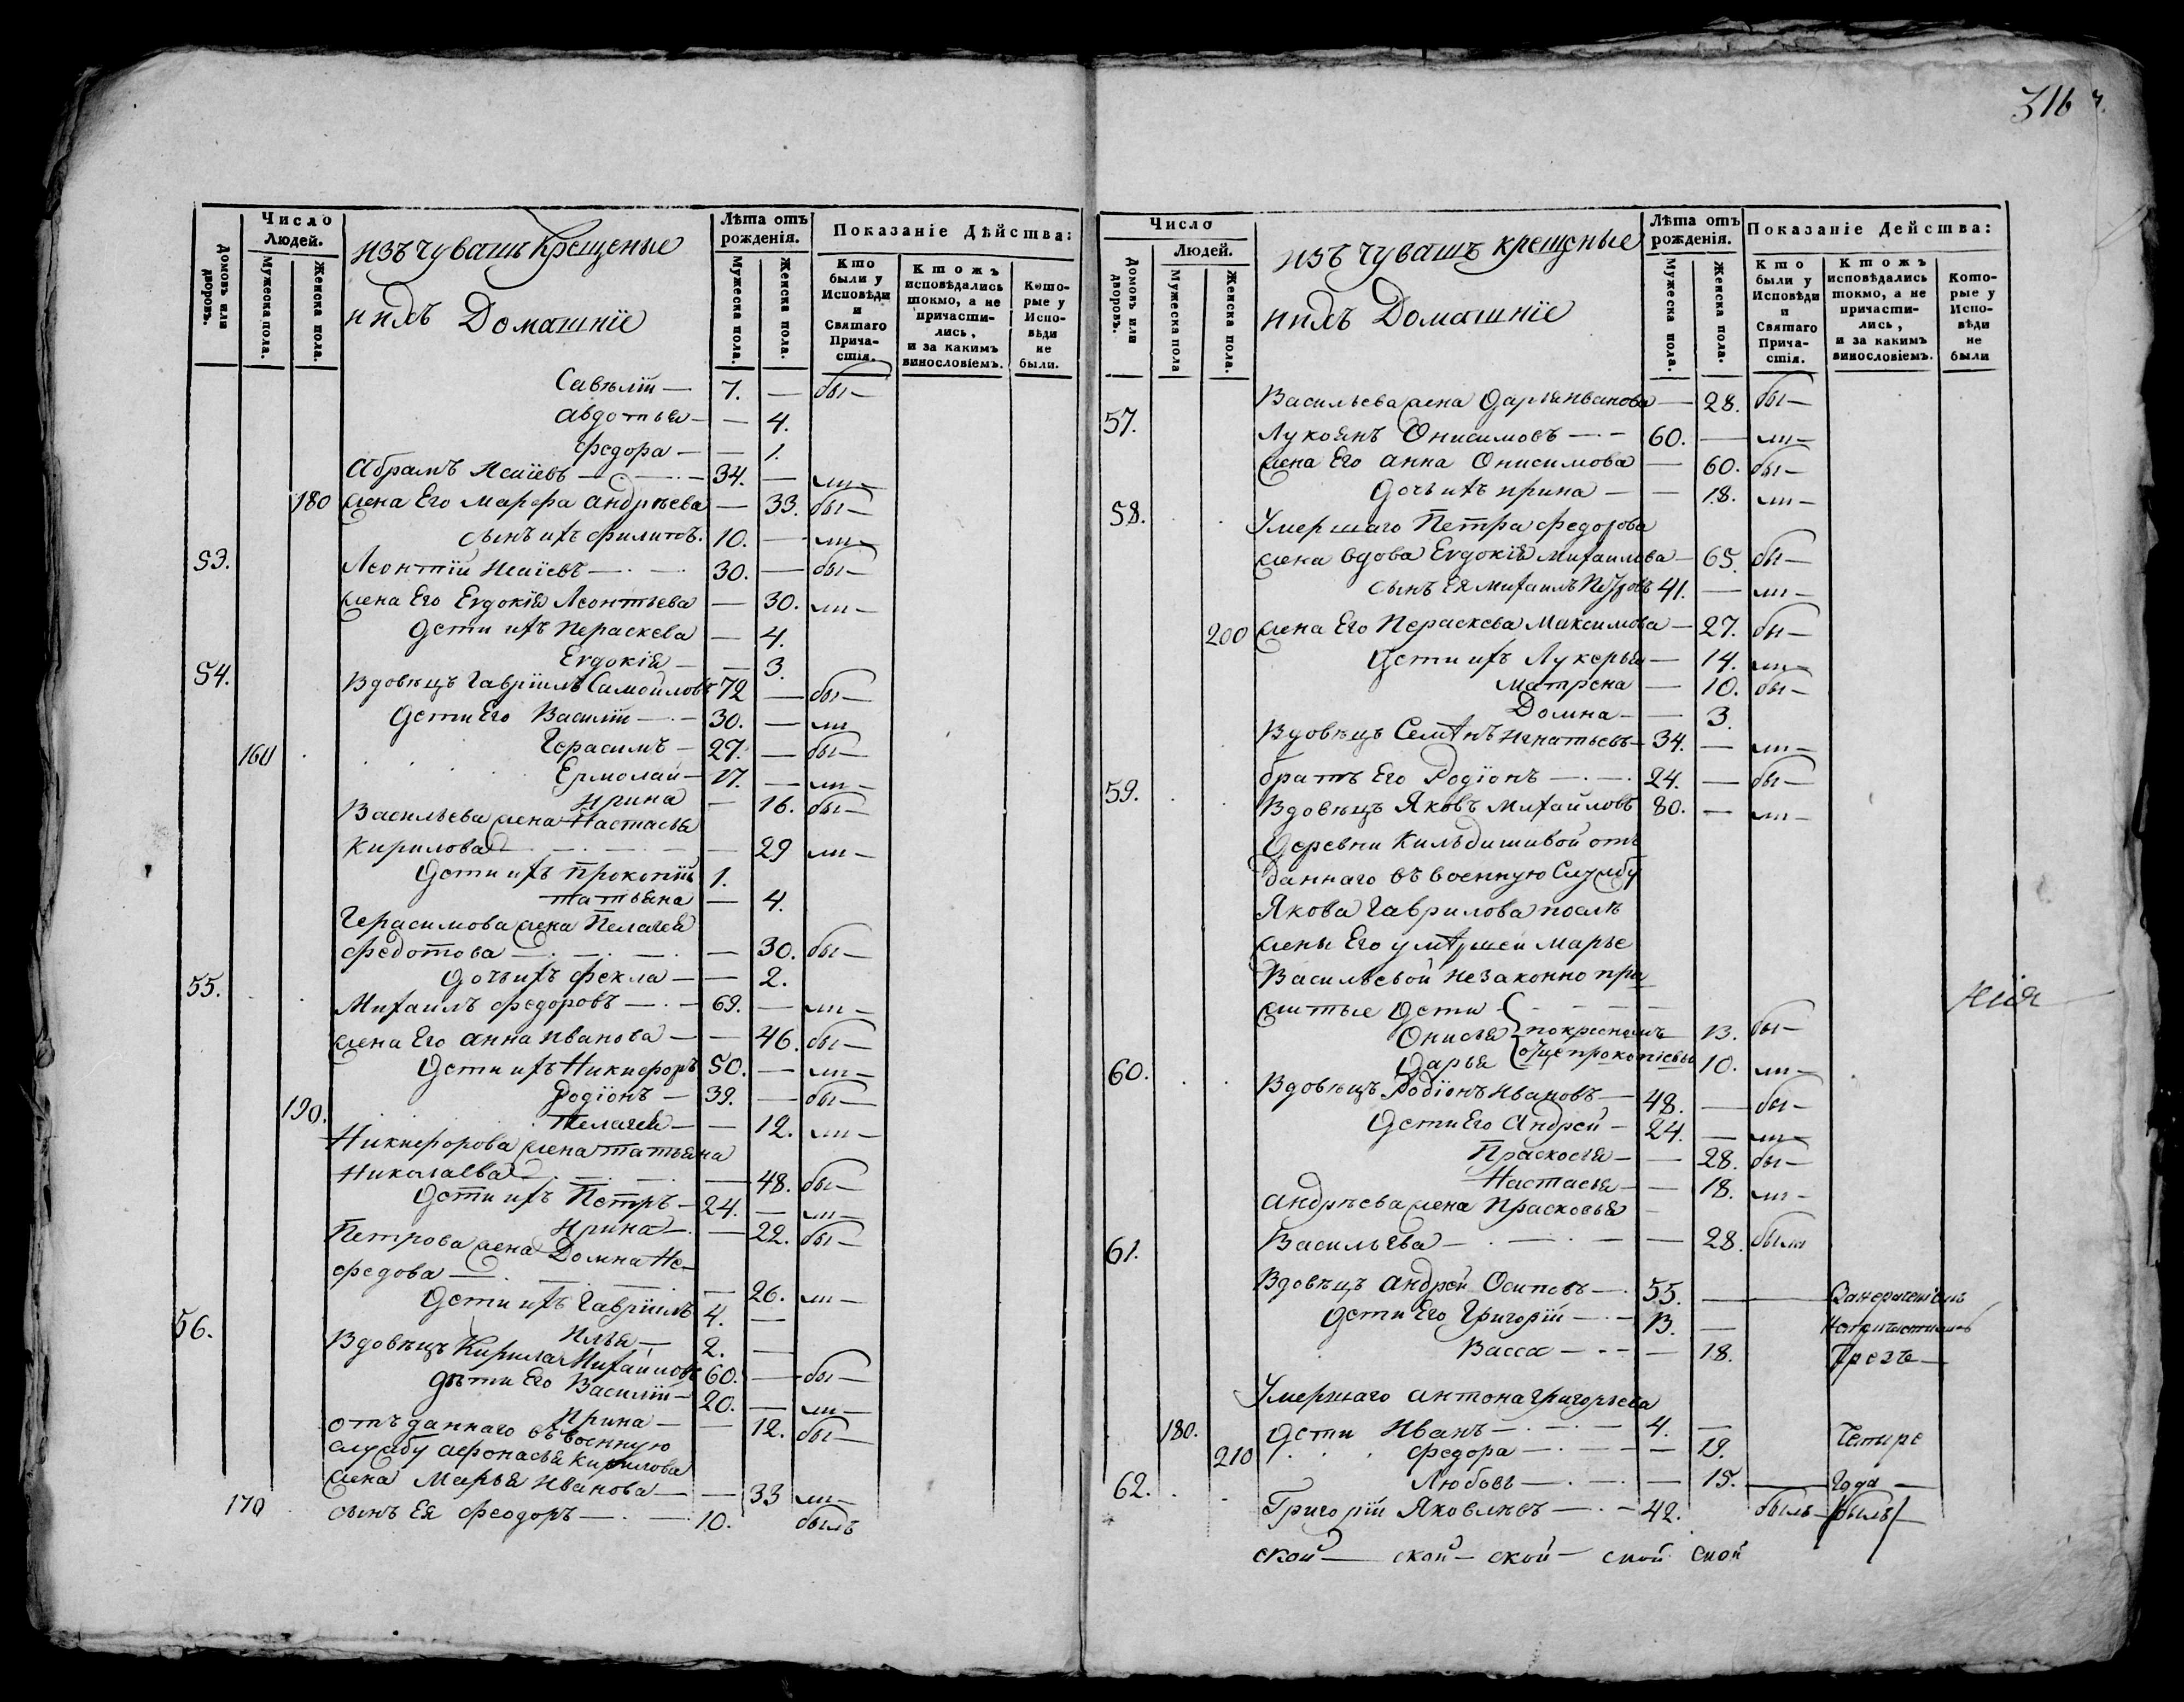 316
Число Людей.
Домовъ или дворовъ.
Мужеска пола.
Женска пола.
изъ чувашъ крещеные
и ихъ Домашніе
Лѣта отъ рожденія.
Мужеска пола.
Женска пола.
Показаніе Дѣйства:
Кто были у Исповѣди и Святаго Причастія.
Ктожъ исповѣдались токмо, а не причастились, и за какимъ винословіемъ.
Которые у Исповѣди не были.
Савелій — 7. — бы—
Авдотья — — 4.
Федора — — 1.
Абрамъ Исаіевъ — 34. — ли—
180 жена Его Марфа Андрѣева — 33. бы—
сынъ ихъ Филипъ. 10. — ли—
53. Леонтій Исаіевъ — 30. — бы—
жена Его Евдокія Леонтьева — 30. ли—
Дети ихъ Пераскева — 4.
Евдокія — — 3.
54. Вдовецъ Гавріилъ Самойловъ 72 — бы—
Дети Его Василій — 30. — ли
160 Герасимъ — 27. — бы—
Ермолай — 17. — ли—
Ирина — 16. бы—
Васильева жена Настасья
Кирилова — — 29 ли—
Дети ихъ Прокопій 1.
татьяна — 4.
Герасимова жена Пелагея
Федотова — — 30. бы—
Дочь ихъ Фекла — — 2.
55. Михаилъ Федоровъ — 69. — ли—
жена Его Анна Иванова — — 46. бы—
Дети ихъ Никифоръ 50. — ли—
Родіонъ — 39. — бы—
190. Пелагея — — 12. ли—
Никифорова жена татьяна
Николаева — — 48. бы—
Дети ихъ Петръ — 24. — ли—
Ирина — — 22. бы—
Петрова жена Домна Не-
федова — — 26. ли—
Дети ихъ Гавріилъ 4. —
Илья — 2. —
56. Вдовецъ Кирила Михайловъ 60. — бы—
дѣти Его Василій — 20. — ли—
Ирина — — 12. бы—
отъданнаго въ военную
службу Афонасья Кирилова
жена Марья Иванова — — 33 ли—
170 сынъ Ея Феодоръ — 10. быль
Число Людей.
Домовъ или дворовъ.
Мужеска пола
Женска пола.
изъ чувашъ крещеные
и ихъ Домашніе
Лѣта отъ рожденія.
Мужеска пола.
Женска пола.
Показаніе Действа:
Кто были у Исповѣди и Святаго Причастія.
Ктожъ исповѣдались токмо, а не причастились, и за какимъ винословіемъ.
Которые у Исповѣди не были
Васильева жена Дарья Иванова — 28. бы—
57. Лукоянъ Онисимовъ — 60. — ли—
жена Его Анна Онисимова — 60. бы—
Дочь ихъ Ирина — — 18. ли—
58. Умершаго Петра Федорова
жена вдова Евдокія Михаилова — 65. бы—
сынъ Ея Михаилъ Петровъ 41. — ли—
200 жена Его Пераскева Максимова — 27. бы—
Дети ихъ Лукерья — 14. ли—
Матрена — 10. бы—
Домна — — 3.
Вдовецъ Семенъ Игнатьевъ — 34. — ли—
братъ Его Родіонъ — 24. — бы—
59. Вдовецъ Яковъ Михайловъ 80. — ли—
Деревни Кильдишивой отъ
даннаго въ военную Службу
Якова Гаврилова послѣ
жены Его умершей Марье
Васильевой незаконно при
житые Дети
Онисья по кресномъ — 13. бы—
60. Дарья отце прокопіевы 10. ли—
Вдовецъ Родіонъ Ивановъ — 48. — бы—
Дети Его Андрей — 24. — ли—
Прасковья — — 28. бы—
Настасья — — 18. ли—
Андрѣева жена Прасковья —
Васильева — — 28. были
61. Вдовецъ Андрей Осиповъ — 55. —
Дети Его Григорій — 13. —
Васса — — 18. Трезъ—
Умершаго Антона Григорьева
180. Дети Иванъ — 4. — Четыре
210 Федора — — 19.
Любовь — — 15. — Года —
62. Григорій Яковлевъ — 42. быль — быль
ской — ской — ской — ской ской